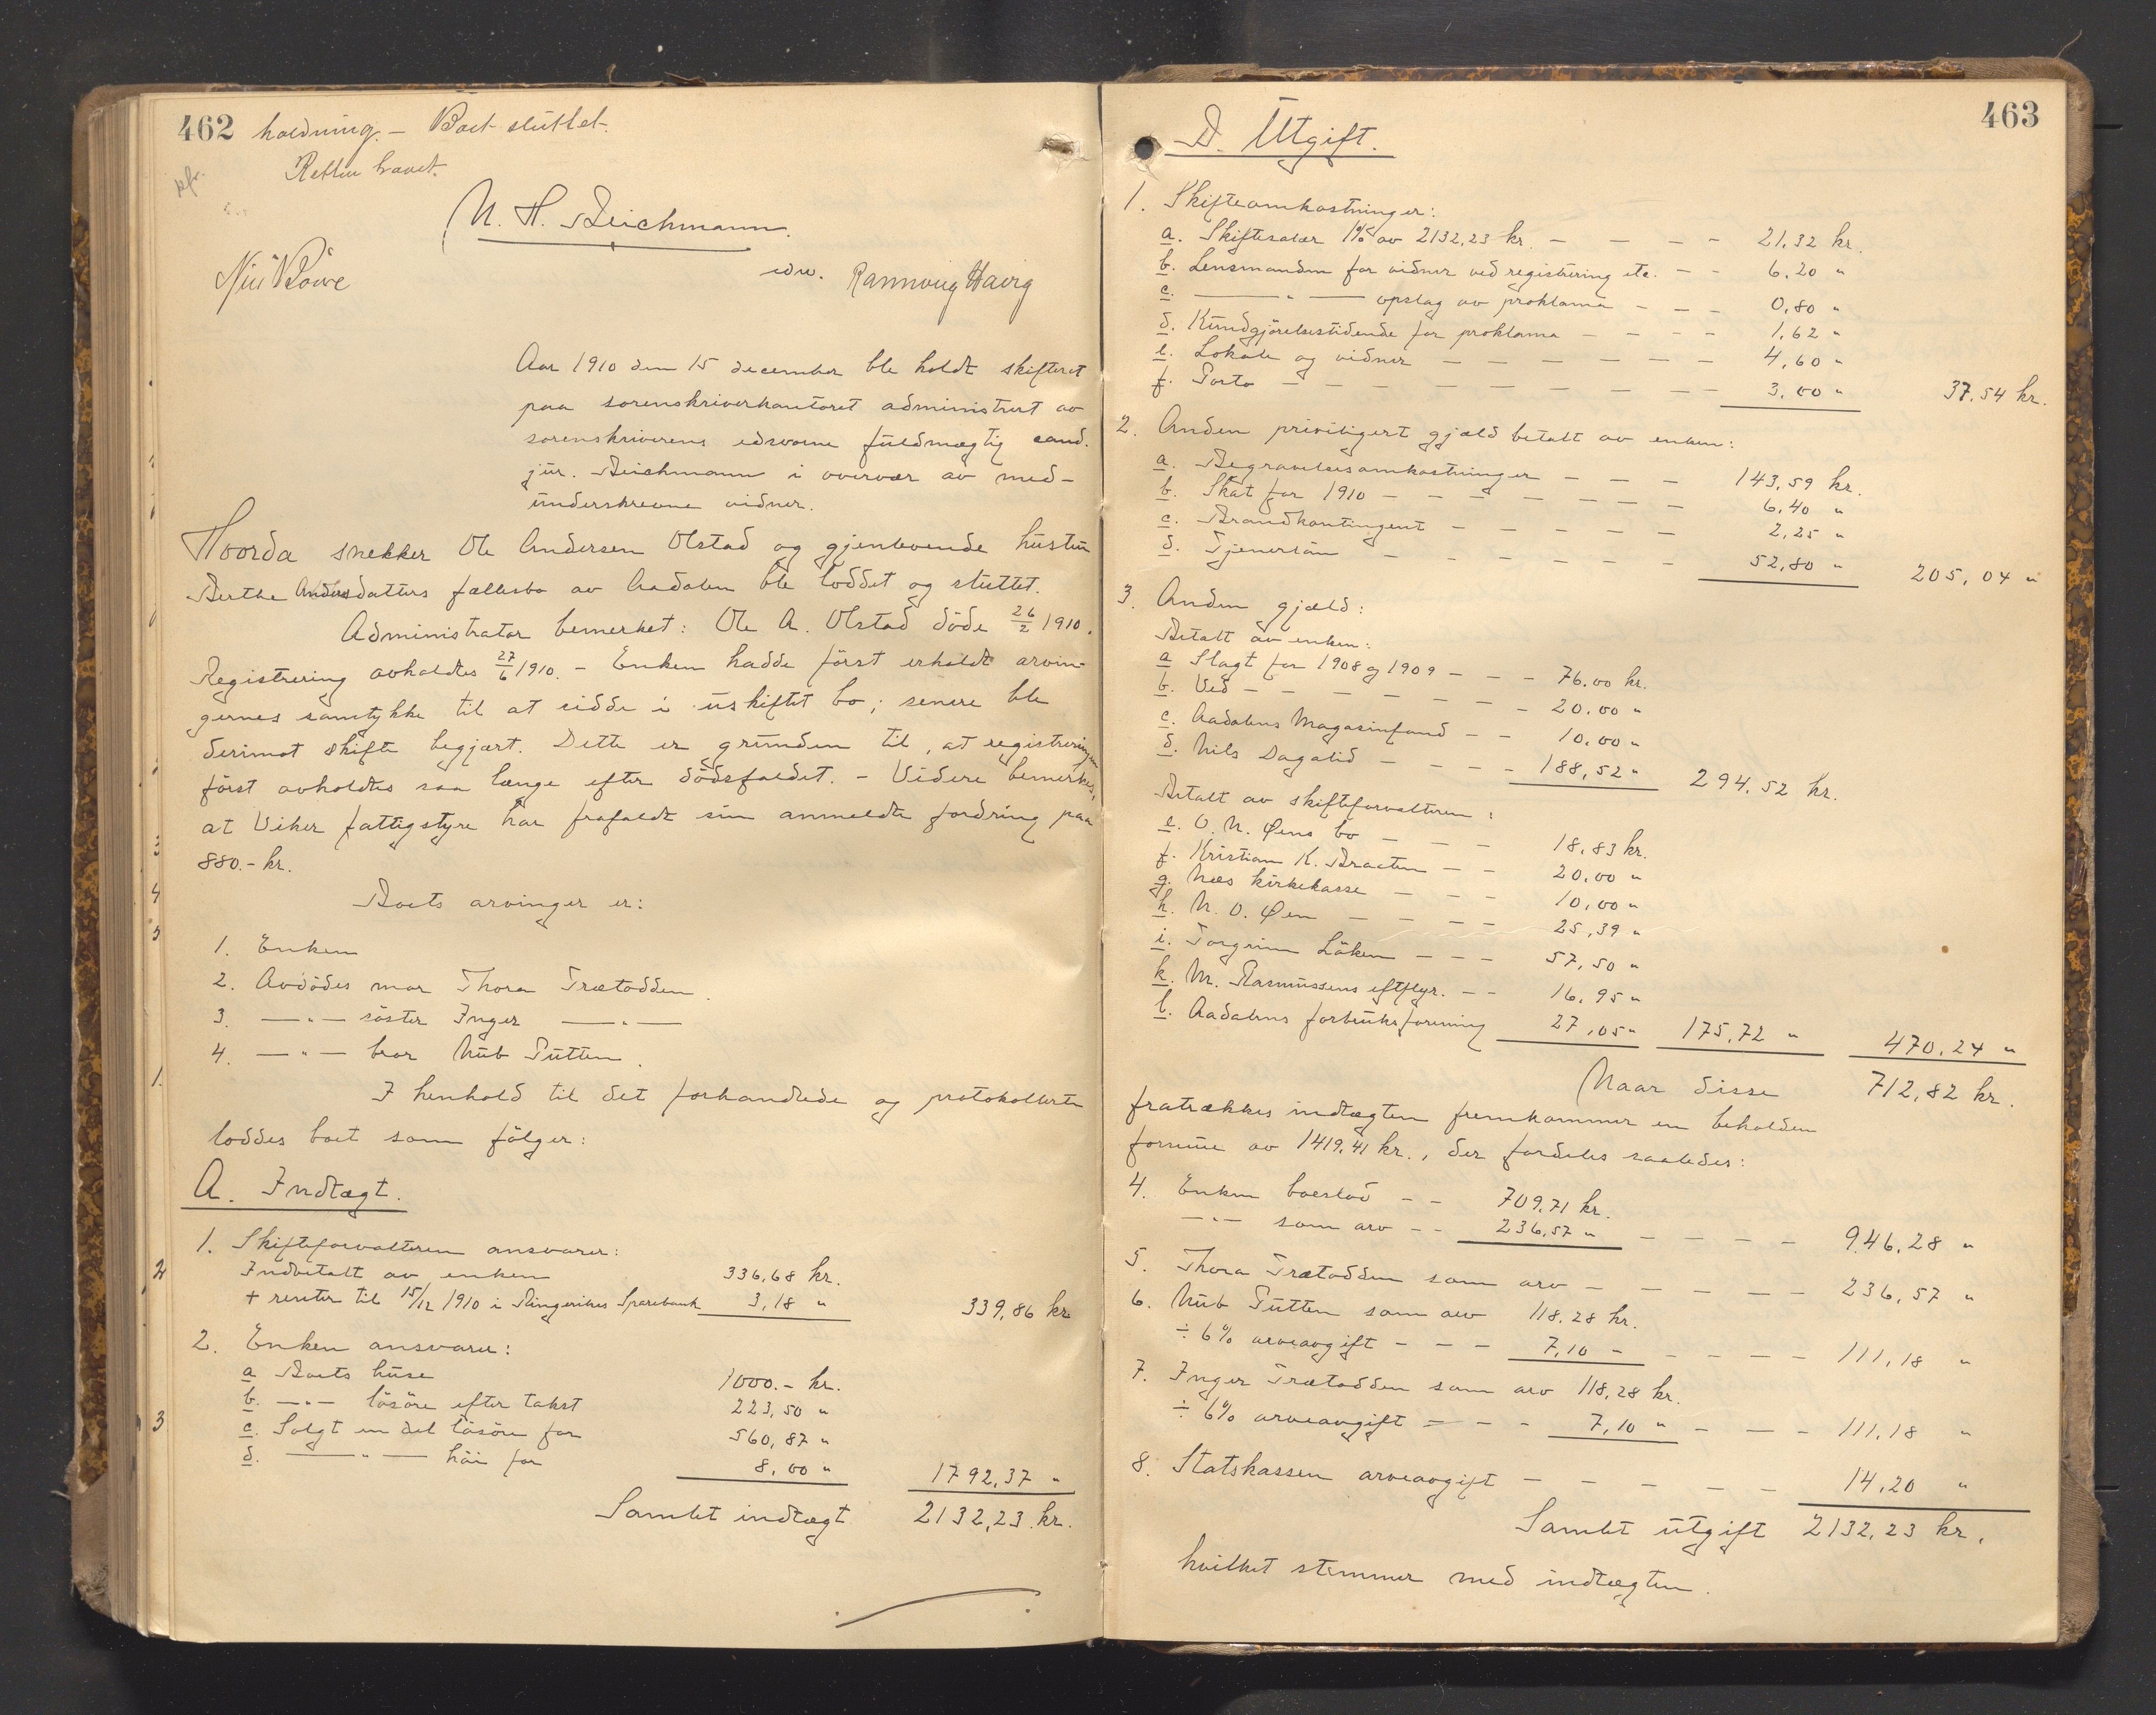 462 holdning. – Boet sluttet.
Retten hævet.
N. H. Beichmann.
edsv. Rannveig Havig
Aar 1910 den 15 december ble holdt skifteret
paa sorenskriverkontoret administrert av
sorenskriverens edsvorne fuldmægtig cand.
jur. Beichmann i overvær av med-
underskrevne vidner.
Hvorda snekker Ole Andersen Olstad og gjenlevende hustru
Berthe Andersdatters fællesbo av Aadalen ble loddet og sluttet.
Administrator bemerket: Ole A. Olstad döde 26/2 1910.
Registrering avholdtes 27/6 1910. – Enken hadde først erholdt arvin-
gernes samtykke til at sidde i uskiftet bo; senere ble
derimot skifte begjært. Dette er grunden til, at registreringen
først avholdtes saa længe efter dödsfaldet. – Videre bemerkes,
at Viker fattigstyre har frafaldt sin anmeldte fordring paa
880.- kr.
Boets arvinger er:
1. Enken
2. Avdödes mor Thora Trætodden.
3. —"— söster Inger —"—
4. —"— bror Nub Putten.
I henhold til det forhandlede og protokollerte
loddes boet som fölger:
A. Indtægt.
1. Skifteforvalteren ansvarer:
Indbetalt av enken 336,68 kr.
+ renter til 15/12 1910 i Ringerikes Sparebank 3,18 " 339,86 kr
2. Enken ansvarer:
a Boets huse 1000.- kr.
b. —"— lösöre efter takst 223,50 "
c. Solgt en del lösöre for 560,87 "
d. —"— höi for 8,00 " 1792,37 "
Samlet indtægt 2132,23 kr.
463
B. Utgift.
1. Skifteomkostninger:
a. Skiftesalær 1% av 2132,23 kr. – – – – 21,32 kr.
b. Lensmanden for vidner ved registrering etc. – – 6,20 "
c. —"— opslag av proklama – – – 0,80 "
d. Kundgjörelsestidende for proklama – – – – 1,62 "
e. Lokale og vidner – – – – – – – 4,60 "
f. Porto – – – – – – – – – 3,00 " 37,54 kr.
2. Anden priviligert gjæld betalt av enken:
a. Begravelsesomkostninger – – – 143,59 kr.
b. Skat for 1910 – – – – – – – 6,40 "
c. Brandkontingent – – – – – 2,25 "
d. Tjenerlön – – – – – – 52,80 " 205,04 "
3. Anden gjæld:
Betalt av enken:
a Slagt for 1908 og 1909 – – – 76.00 kr.
b. Ved – – – – – – – 20.00 "
c. Aadalens Magasinfond – – 10,00 "
d. Nils Dagalid – – – – 188,52 " 294,52 kr.
Betalt av skifteforvalteren:
e. O. N. Øens bo – – – 18,83 kr.
f. Kristian K. Braaten – – 20,00 "
g. Næs kirkekasse – – – 10,00 "
h. N. O. Øen – – – – 25,39 "
i. Torgrim Löken – – – 57,50 "
k. M. Rasmussens eftflgr. – – 16,95 "
l. Aadalens forbruksforening 27,05 " 175,72 " 470,24 "
Naar disse 712,82 kr.
fratrækkes indtægten fremkommer en beholden
formue av 1419,41 kr., der fordeles saaledes:
4. Enken boeslod – – 709,71 kr.
—"— som arv – – 236,57 " – – – – 946,28 "
5. Thora Trætodden som arv – – – – – – 236,57 "
6. Nub Putten som arv 118.28 kr.
÷ 6% arveavgift – – – 7,10 " – – – – 111,18 "
7. Inger Trætodden som arv 118,28 kr.
÷ 6% arveavgift – – – 7,10 " – – – 111,18 "
8. Statskassen arveavgift – – – – – 14,20 "
Samlet utgift 2132,23 kr.
hvilket stemmer med indtægten.